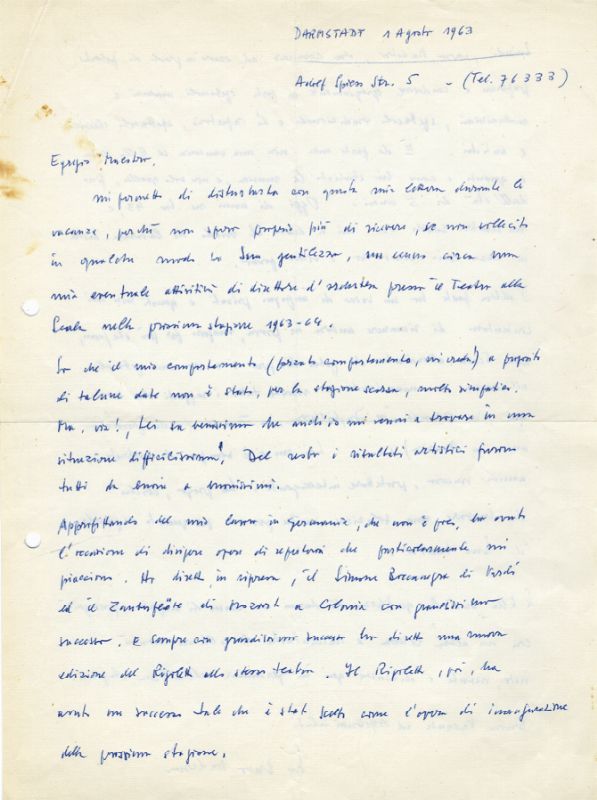 DARMSTADT 1 Agosto 1963
Adolf Spiess Str. 5 - (Tel. 76333)
Egregio Maestro,
mi permetto di disturbarla con questa mia lettera durante le
vacanze, perché non spero proprio più di ricevere, se non sollecito
in qualche modo la Sua gentilezza, un cenno circa una
mia eventuale attività di direttore d'orchestra presso il Teatro alla
Scala nella prossima stagione 1963-64.
So che il mio comportamento (forzato comportamento, mi creda!) a proposito
di talune date non è stato, per la stagione scorsa, molto simpatico.
Ma, via!, Lei sa benissimo che anch'io mi venni a trovare in una
situazione difficilissima! Del resto i risultati artistici furono
tutti da buoni a buonissimi.
Approfittando del mio lavoro in Germania, che non è poco, ho avuto
l'occasione di dirigere opere di repertorio che particolarmente mi
piacciono. Ho diretto, in ripresa, il Simone Boccanegra di Verdi
ed il Zauberflöte di Mozart a Colonia con grandissimo
successo. E sempre con grandissimo successo ho diretto una nuova
edizione del Rigoletto allo stesso teatro. Il Rigoletto, poi, ha
avuto un successo tale che è stato scelto come l'opera di inaugurazione
della prossima stagione.